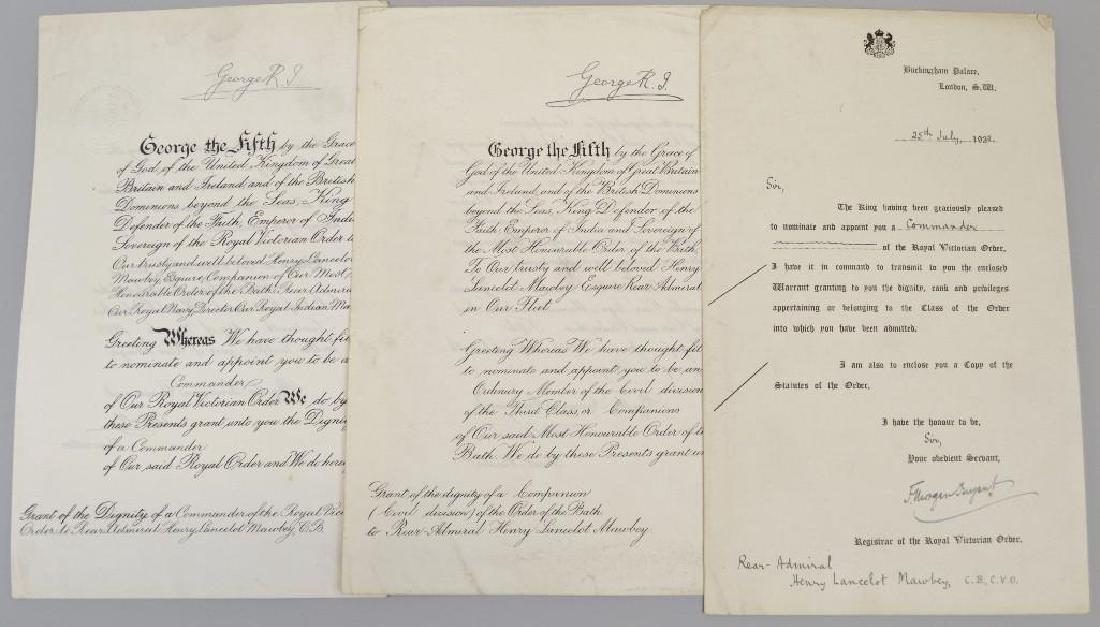 George R. I.
George the Fifth by the Grace
of God of the United Kingdom of Great
Britain and Ireland and of the British
Dominions beyond the Seas, King
Defender of the Faith, Emperor of Indi
Sovereign of the Royal Victorian Order to
Our trusty and well beloved Henry Lancelot
Mawbey, Esquire Companion of Our Most
Honourable Order of the Bath, Rear Admiral
Our Royal Navy, Director Our Royal Indian Ma
Greeting Whereas We have thought fit
to nominate and appoint you to be a
Commander
of Our Royal Victorian Order We do by
these Presents grant unto you the Dignity
of a Commander
of Our said Royal Order and We do here
Grant of the Dignity of a Commander of the Royal Vic
Order to Rear Admiral Henry Lancelot Mawbey, C.B.
George R. I.
George the Fifth by the Grace of
God of the United Kingdom of Great Britain
and Ireland and of the British Dominions
beyond the Seas, King Defender of the
Faith Emperor of India and Sovereign of
the Most Honourable Order of the Bath
To Our trusty and well beloved Henry
Lancelot Mawbey Esquire Rear Admiral
in Our Fleet
Greeting Whereas We have thought fit
to nominate and appoint you to be an
Ordinary Member of the Civil division
of the Third Class or Companions
of Our said Most Honourable Order of t
Bath. We do by these Presents grant u
Grant of the dignity of a Companion
(Civil division) of the Order of the Bath
to Rear Admiral Henry Lancelot Mawbey
Buckingham Palace,
London, S.W.
25th July, 193
Sir,
The King having been graciously pleased
to nominate and appoint you a Commander
of the Royal Victorian Order,
I have it in command to transmit to you the enclosed
Warrant granting to you the dignity, rank and privileges
appertaining or belonging to the Class of the Order
into which you have been admitted.
I am also to enclose you a Copy of the
Statutes of the Order.
I have the honour to be,
Sir,
Your obedient Servant,
Registrar of the Royal Victorian Order.
Rear-Admiral
Henry Lancelot Mawbey, C.B., C.V.O.